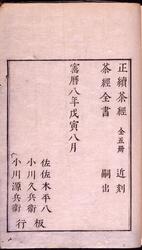 正續茶經 全五册 近刻
茶經全書 嗣出
寳曆八年戊寅八月
佐佐木平八
小川久兵衛 板
小川源兵衛 行